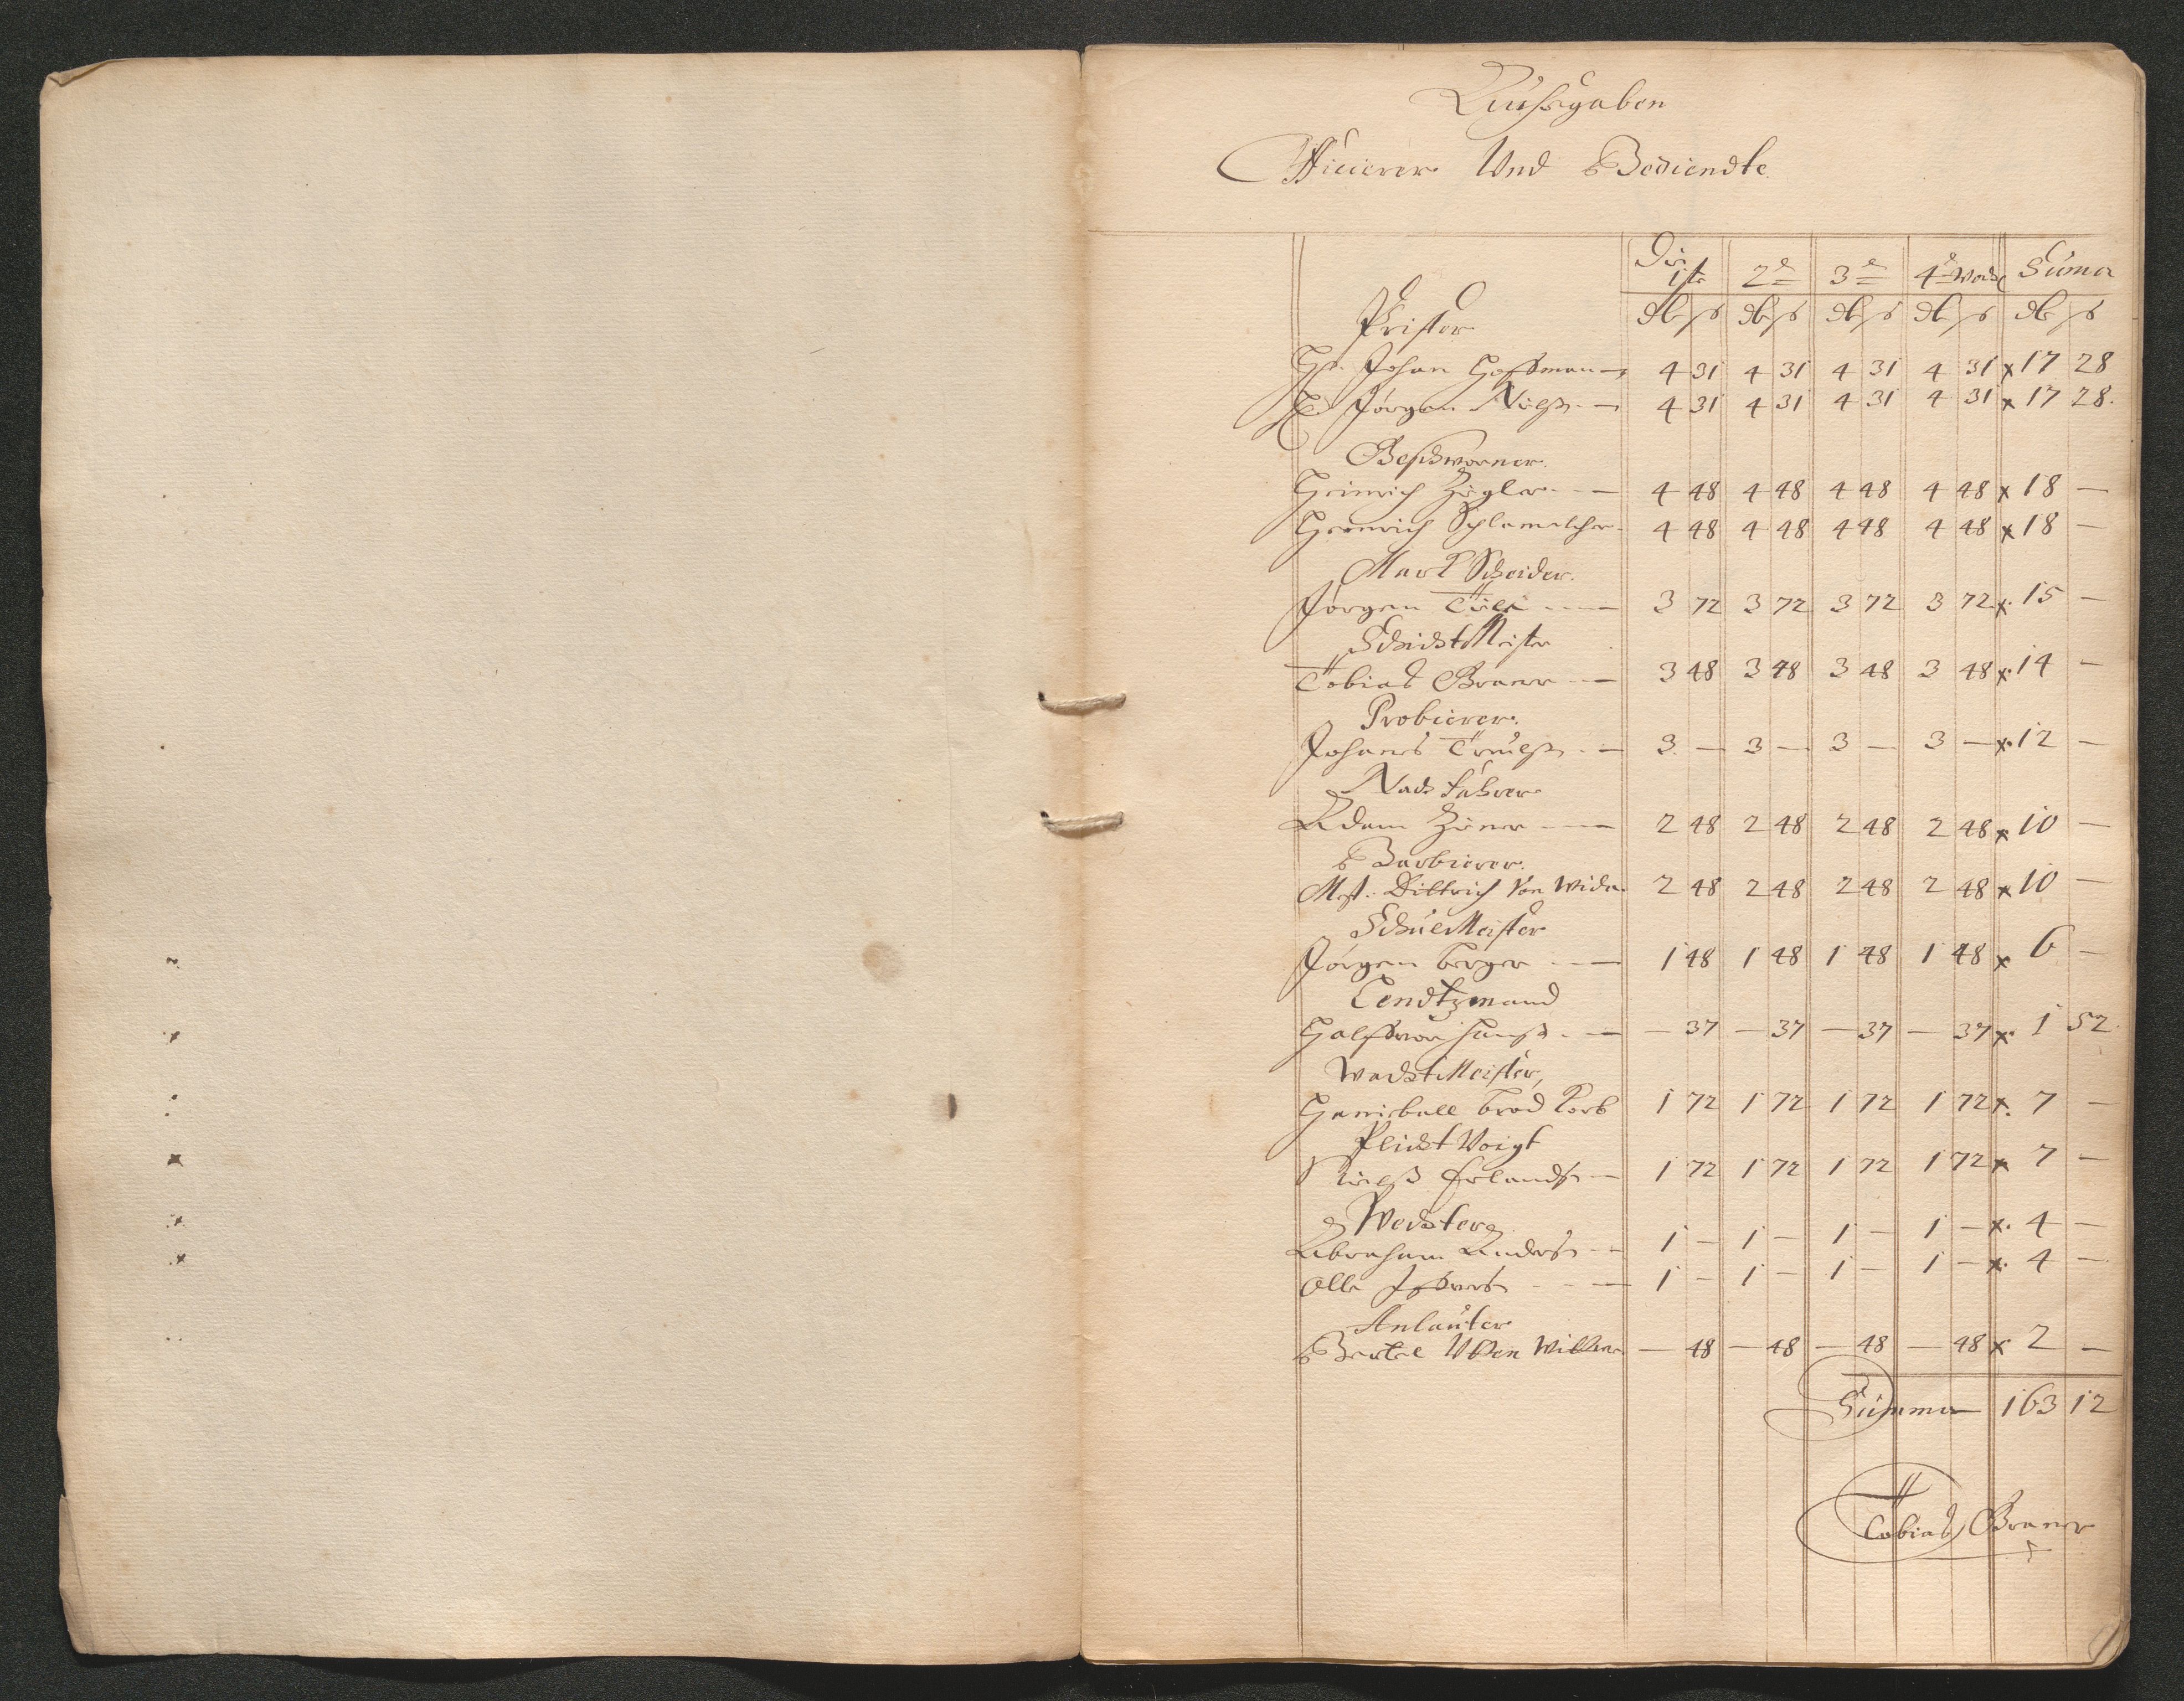 Aussgaben
Officierer Und Bediendte
Die 1ste 2e 3e 4e woch Suma
dlr ß dlr ß dlr ß dlr ß dlr ß
Prister
Hr. Johan Hoffman — 4 31 4 31 4 31 4 31 x 17 28
H. Jørgen Nielß. — 4 31 4 31 4 31 4 31 x 17 28.
Geschworner.
Heinrich Zigler — 4 48 4 48 4 48 4 48 x 18 —
Heinrich Schlamelcher. 4 48 4 48 4 48 4 48 x 18 —
Mark Scheider.
Jørgen — 3 72 3 72 3 72 3 72 x. 15 —
Schicht Meister
Tobias Braner — 3 48 3 48 3 48 3 48 x. 14 —
Probierer.
Johanes Truelß. — 3 — 3 — 3 — 3 — x. 12 —
Nach fahrer
Adam Ziener — 2 48 2 48 2 48 2 48 x 10 —
Barbierer.
Mest: Dittrich Von Wida. 2 48 2 48 2 48 2 48 x 10 —
Schuel Meister
Jørgen Berger — 1 48 1 48 1 48 1 48 x 6 —
Lendtzmand
Halffvor Hanß. — — 37 — 37 — 37 — 37 x. 1 52.
Wacht Meister,
Hanniball brod Korb 1 72 1 72 1 72 1 72 x. 7 —
Plicht Voigt
Nielß Erlandß. — 1 72 1 72 1 72 1 72 x 7 —
Wechter
Abraham Anderß — 1 — 1 — 1 — 1 — x. 4 —
Olle — 1 — 1 — 1 — 1 — x. 4 —
Anlauter
Bertel Von Willen — 48 — 48 — 48 — 48 x 2 —
Summa 163 12
Tobias Braner